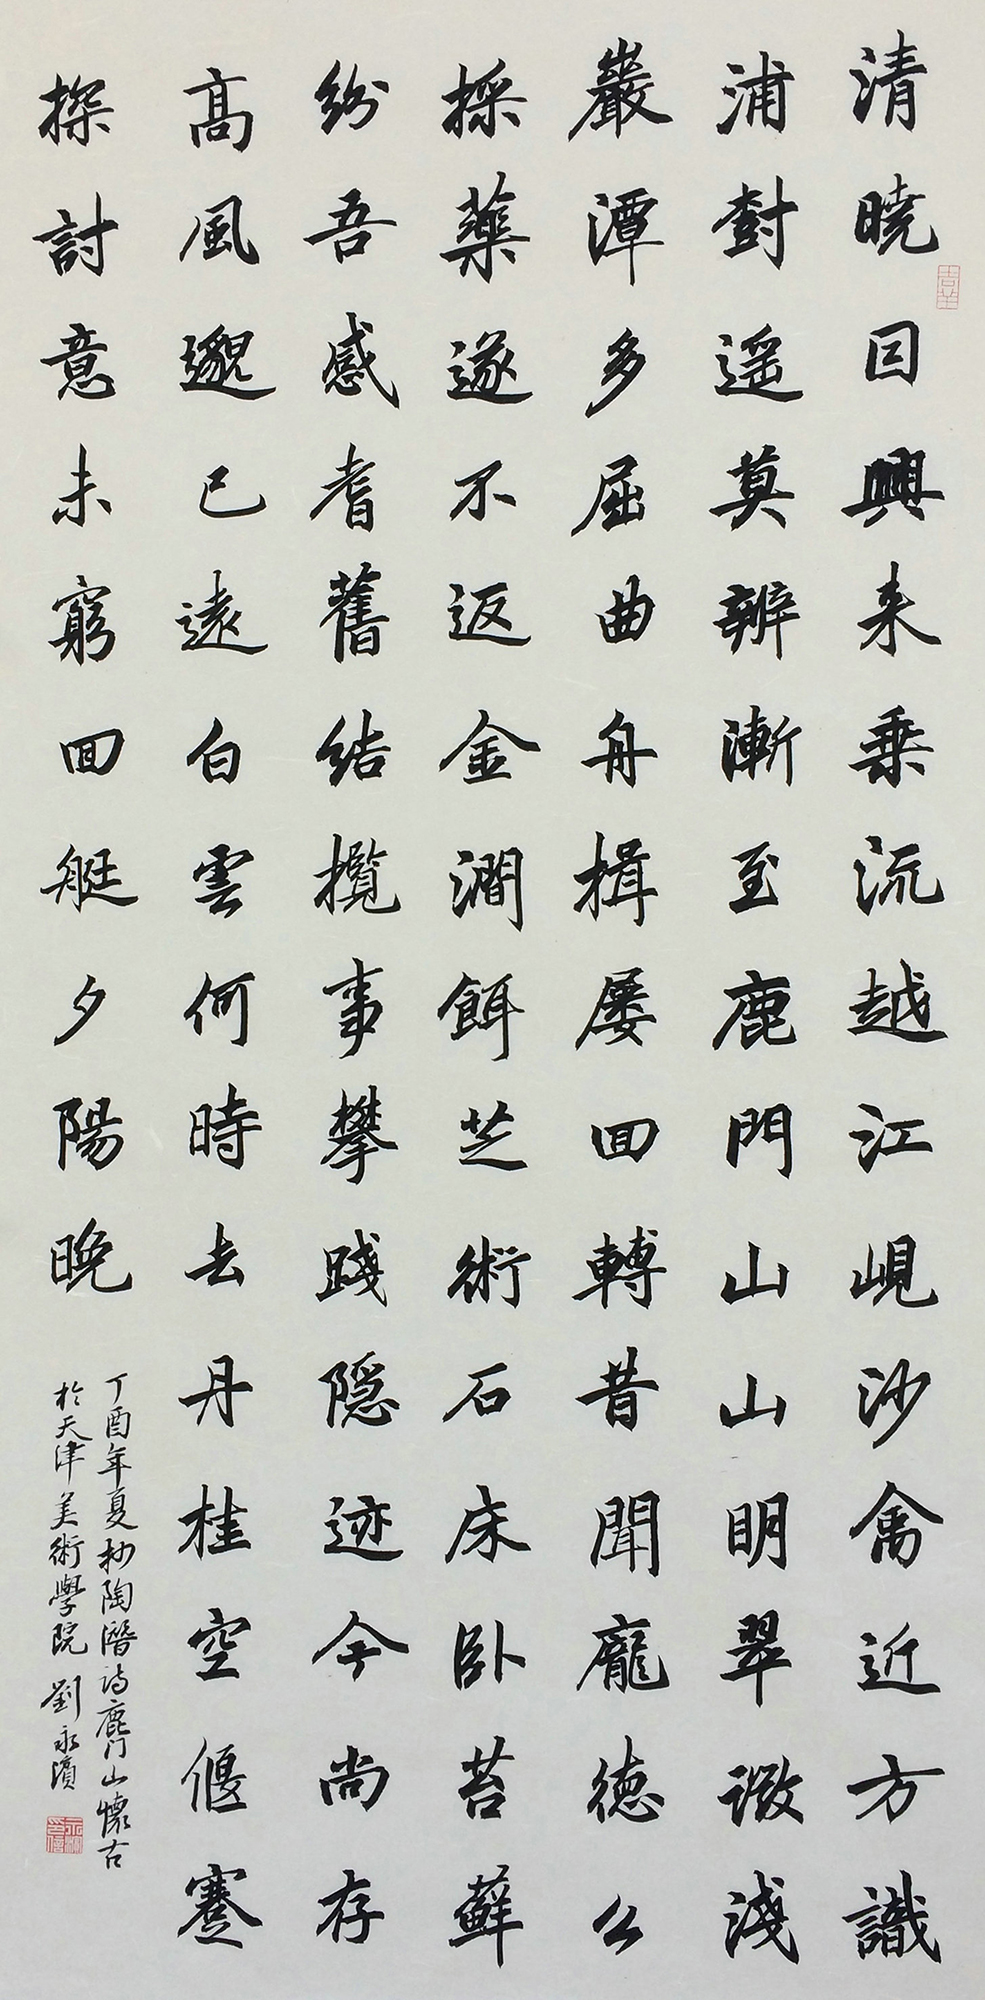 清曉囙興来乗流越江峴沙禽近方識
浦對遥莫辨漸至鹿門山山明翠微淺
巖潭多屈曲舟楫屡回轉昔聞龐德公
採藥遂不返金澗餌芝術石床卧苔蘚
紛吾感耆舊結攬事攀踐隐迹今尚存
高風邈已遠白雲何時去丹桂空偃蹇
探討意未窮回艇夕陽晚
丁酉年夏抄陶潛詩鹿门山懷古
於天津美術學院 劉永濱